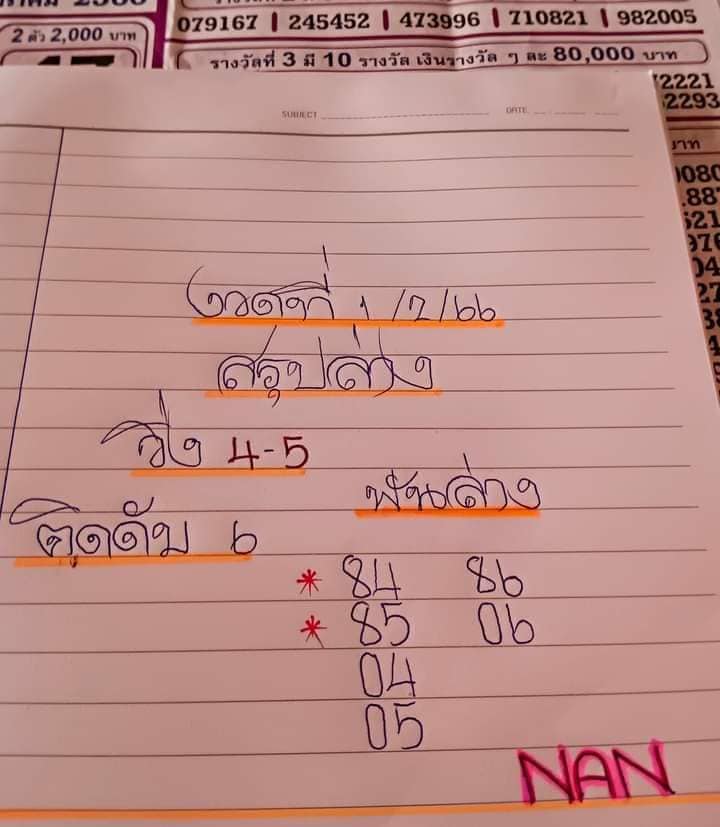 2 ตัว 2,000 บาท
079167 | 245452 | 473996 | 710821 | 982005
รางวัลที่ 3 มี 10 รางวัล เงินรางวัล ๆ ละ 80,000 บาท
SUBJECT DATE
งวดที่ 1/2/66
สรุปล่าง
วิ่ง 4-5
ฟันล่าง
ติดดับ 6
* 84 86
* 85 06
04
05
NAN